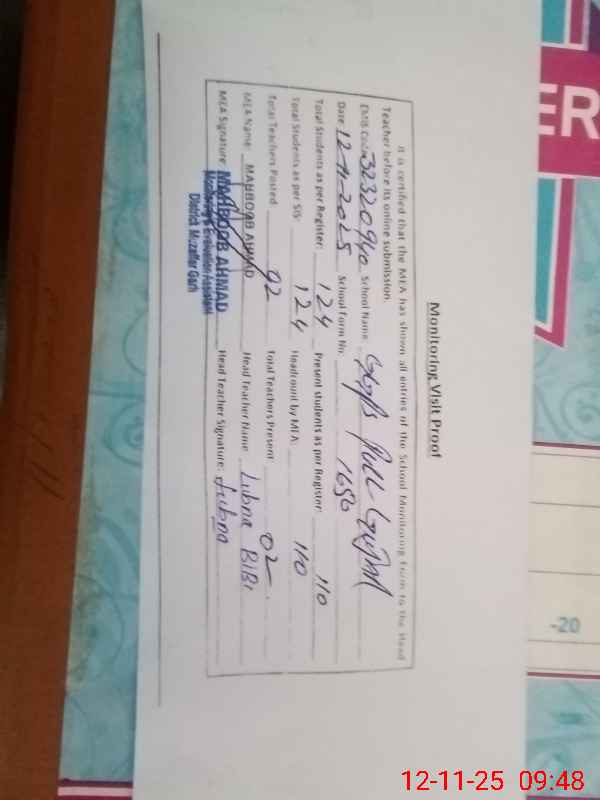 Monitoring Visit Proof
It is certified that the MEA has shown all entries of the School Monitoring Form to the Head
Teacher before its online submission.
EMIS Code: 32320940 School Name:
Date: 12-11-2025 School Form No: 1656
Total Students as per Register: 124 Present students as per Register: 110
Total Students as per SIS: 124 Headcount by MEA: 110
Total Teachers Posted 02 Total Teachers Present: 02
MEA Name: MAHBOOB AHMAD Head Teacher Name Lubna BiBi
MEA Signature: Head Teacher Signature: Lubna
MAHBOOB AHMAD
Monitoring & Evaluation Assistant
District Muzaffar Garh
ER
-20
12-11-25 09:48